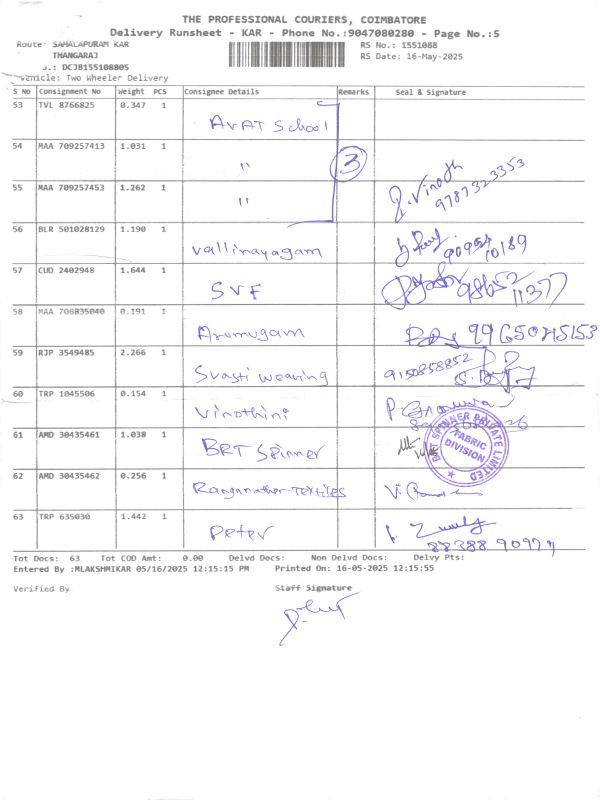 THE PROFESSIONAL COURIERS, COIMBATORE
Delivery Runsheet - KAR - Phone No.:9047080280 - Page No.:5
Route: SAHALAPURAM KAR
RS No.: 1551088
THANGARAJ
RS Date: 16-May-2025
.: DCJB155108805
Vehicle: Two Wheeler Delivery
S No Consignment No Weight PCS Consignee Details Remarks Seal & Signature
53 TVL 8766825 0.347 1 AVAT School
54 MAA 709257413 1.031 1 " 3
55 MAA 709257453 1.262 1 " Vinoth 9787323353
56 BLR 501028129 1.190 1 Vallinayagam
57 CUD 2402948 1.644 1 SVF 98652 11377
58 MAA 706835040 0.191 1 Arumugam
59 RJP 3549485 2.266 1 Svasti weaving 9150858852
60 TRP 1045506 0.154 1 Vinothini
61 AMD 30435461 1.038 1 BRT Spinner
BRT SPINNER PRIVATE LIMITED
FABRIC DIVISION
62 AMD 30435462 0.256 1 Ranganathar Textiles
63 TRP 635030 1.442 1 Peter
Tot Docs: 63 Tot COD Amt: 0.00 Delvd Docs: Non Delvd Docs: Delvy Pts:
Entered By :MLAKSHMIKAR 05/16/2025 12:15:15 PM Printed On: 16-05-2025 12:15:55
Verified By Staff Signature